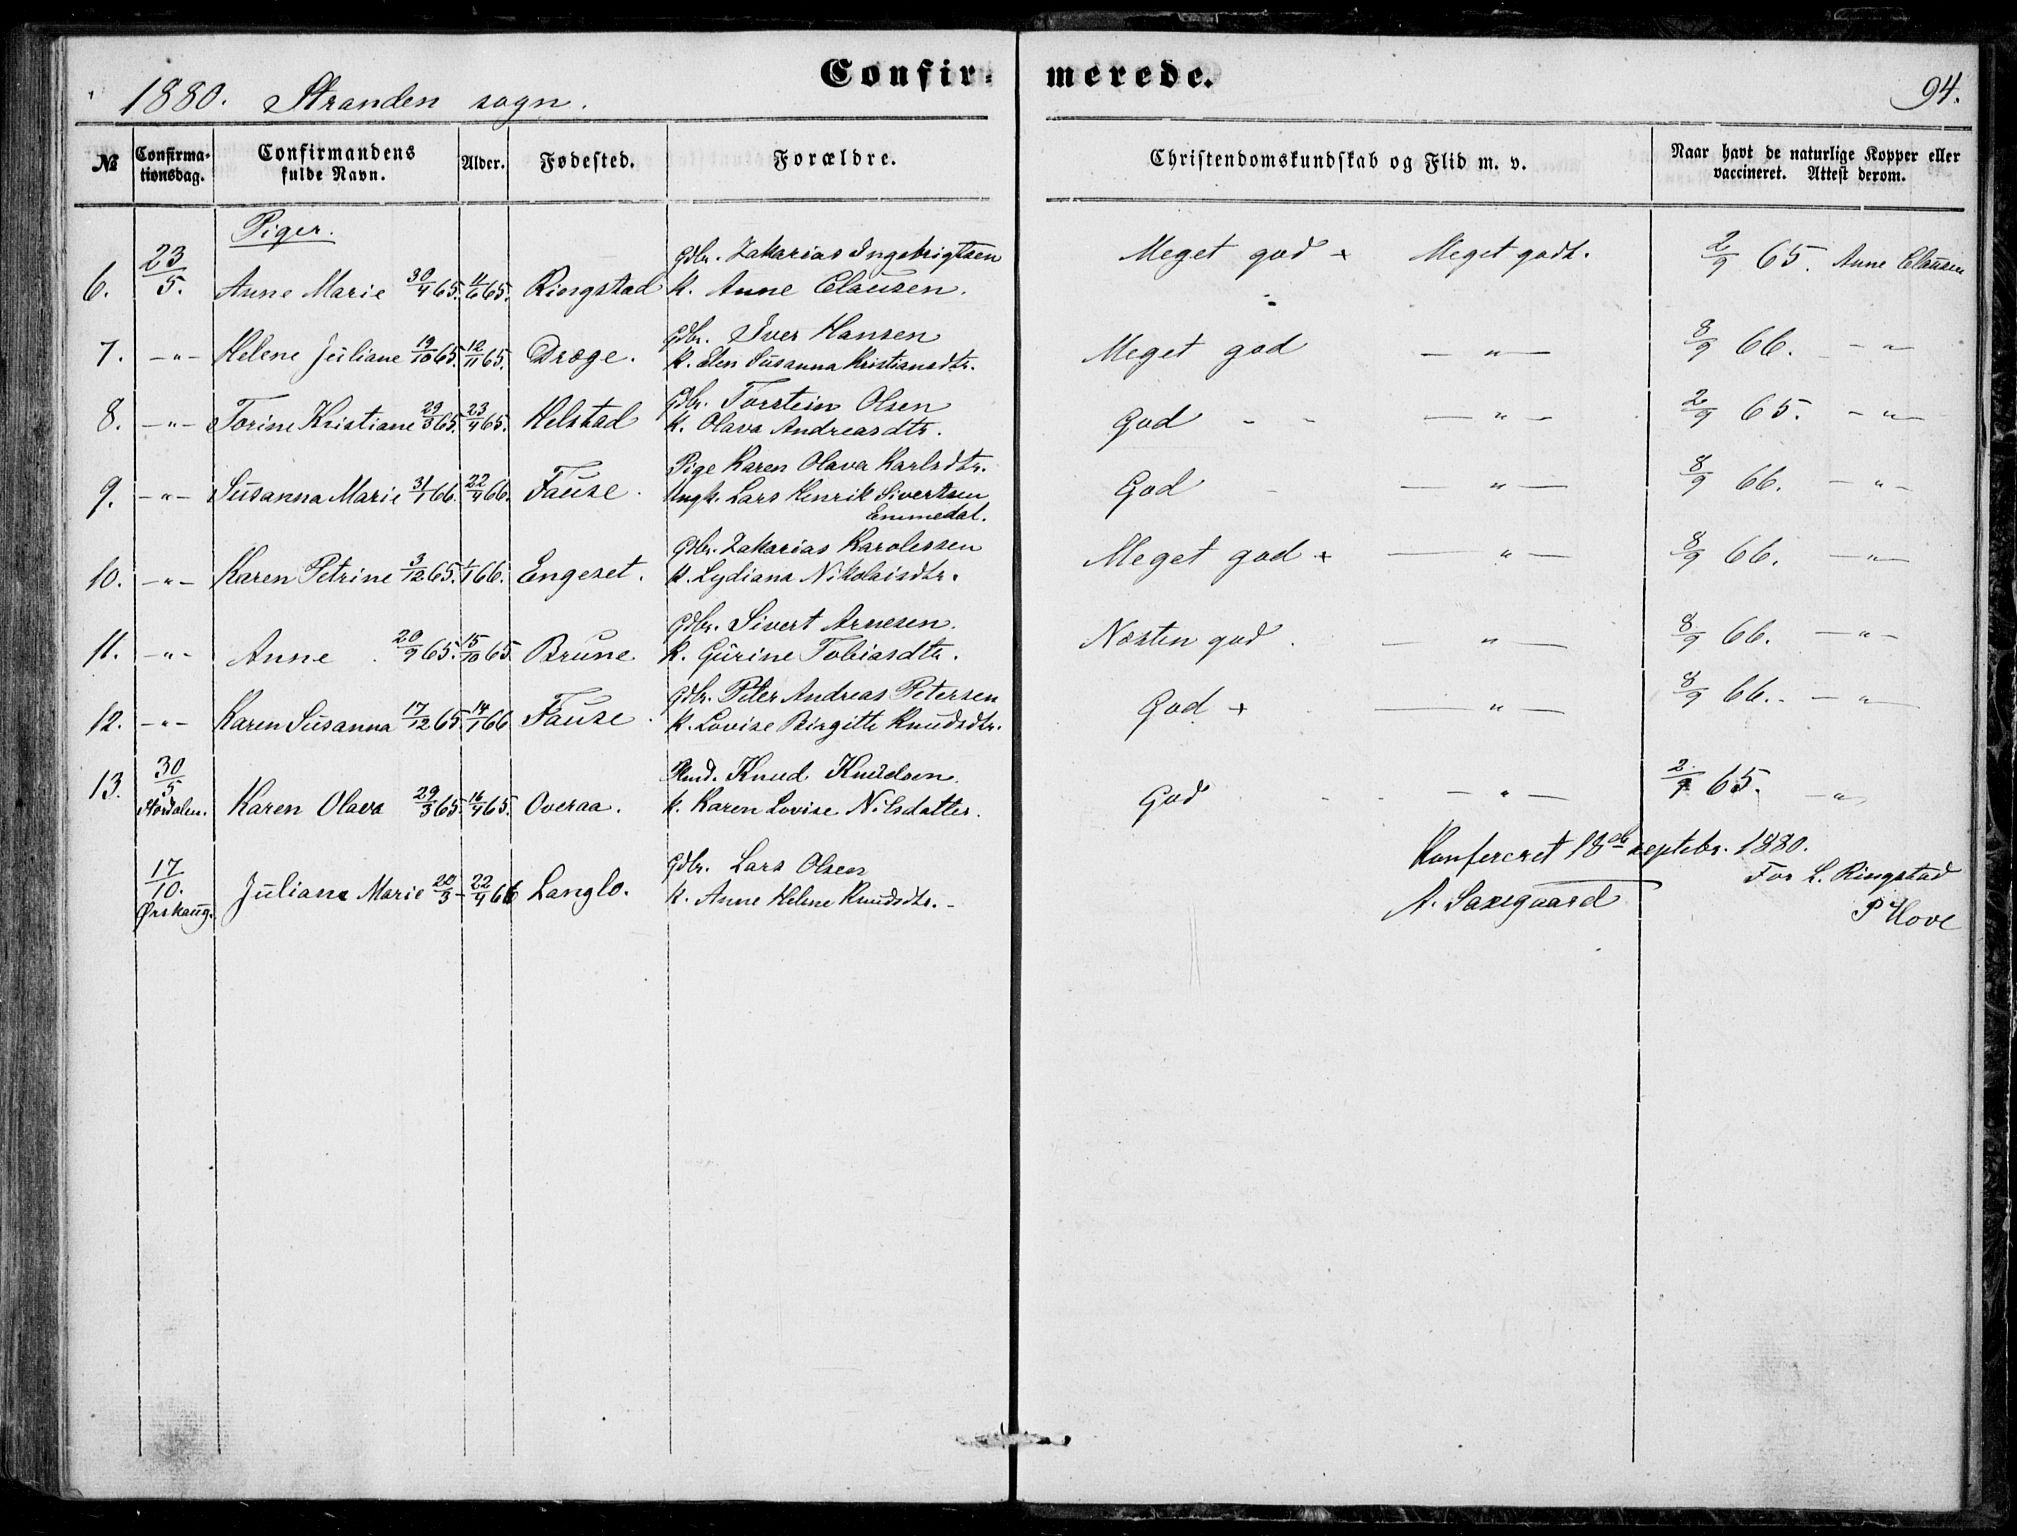 Confir- merede.
1880. Stranden sogn. 94.
№ Confirma-tionsdag. Confirmandens fulde Navn. Alder. Fødested. Forældre. Christendomskundskab og Flid m. v. Naar havt de naturlige Kopper eller vaccineret. Attest derom.
Piger.
6. 23/5. Anne Marie 30/4 65. 4/6 65. Ringstad Gdbr. Zakarias Ingebrigtsen
K. Anne Clausen. Meget god + Meget godt. 2/9 65. Anne Clausen
7. -„- Helene Juliane 19/10 65. 12/11 65. Drøge. Gdbr. Iver Hansen
K. Elen Susanna Kristiansdtr. Meget god -„- 8/9 66. -„-
8. -„- Torine Kristiane 29/3 65. 23/4 65. Helstad Gdbr. Torstein Olsen
K. Olava Andreasdtr. God - - -„- 2/9 65. -„-
9. -„- Susanna Marie 31/1 66. 22/4 66. Fause. Pige Karen Olava Karlsdtr.
Ungk. Lars Henrik Sivertsen
Emmedal. God - -„- 8/9 66. -„-
10. -„- Karen Petrine 3/12 65. 1/1 66. Engeset. Gdbr. Zakarias Karolessen
K. Lydiana Nikolaisdtr. Meget god + -„- 8/9 66. -„-
11. -„- Anne 20/9 65. 15/10 65. Brune Gdbr. Sivert Arnesen.
K. Gurine Tobiasdtr. Næsten god. -„- 8/9 66. -„-
12. -„- Karen Susanna 17/12 65. 14/1 66 Fause. Gdbr. Peter Andreas Petersen
K. Lovise Birgitte Knudsdtr. God + -„- 8/9 66. -„-
13. 30/5 Stordalen. Karen Olava 29/3 65. 16/4 65. Overaa. Knud Knudsen.
K. Karen Lovise Nilsdatter. God -„- 2/9 65. -„-
17/10. Ørskaug. Juliane Marie 20/3 - 22/4 66 Langlo. Gdbr. Lars Olsen
K. Anne Helene Knudsdtr. -
Konfereret 18de septebr. 1880.
A. Saxegaard
For L. Ringstad
P Hove